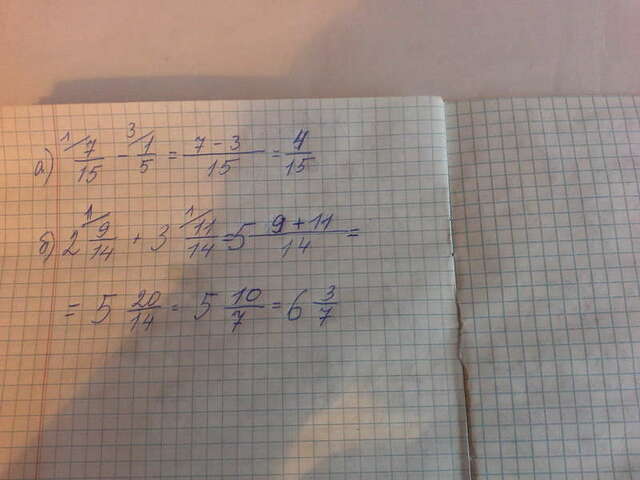 а) 1/ 7/15 - 3/ 1/5 = (7-3)/15 = 4/15
б) 2 1/ 9/14 + 3 1/ 11/14 = 5 (9+11)/14 =
= 5 20/14 = 5 10/7 = 6 3/7